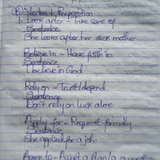 Verbs + Preposition
1. Look after - Take care of
Sentence
She looks after her sick mother
Believe in - Have faith in
Sentence
I believe in God
Rely on - Trust/depend
Sentence
Don't rely on luck alone
Apply for - Request formally
Sentence
She applied for a job
Agree to - Accept a plan/a